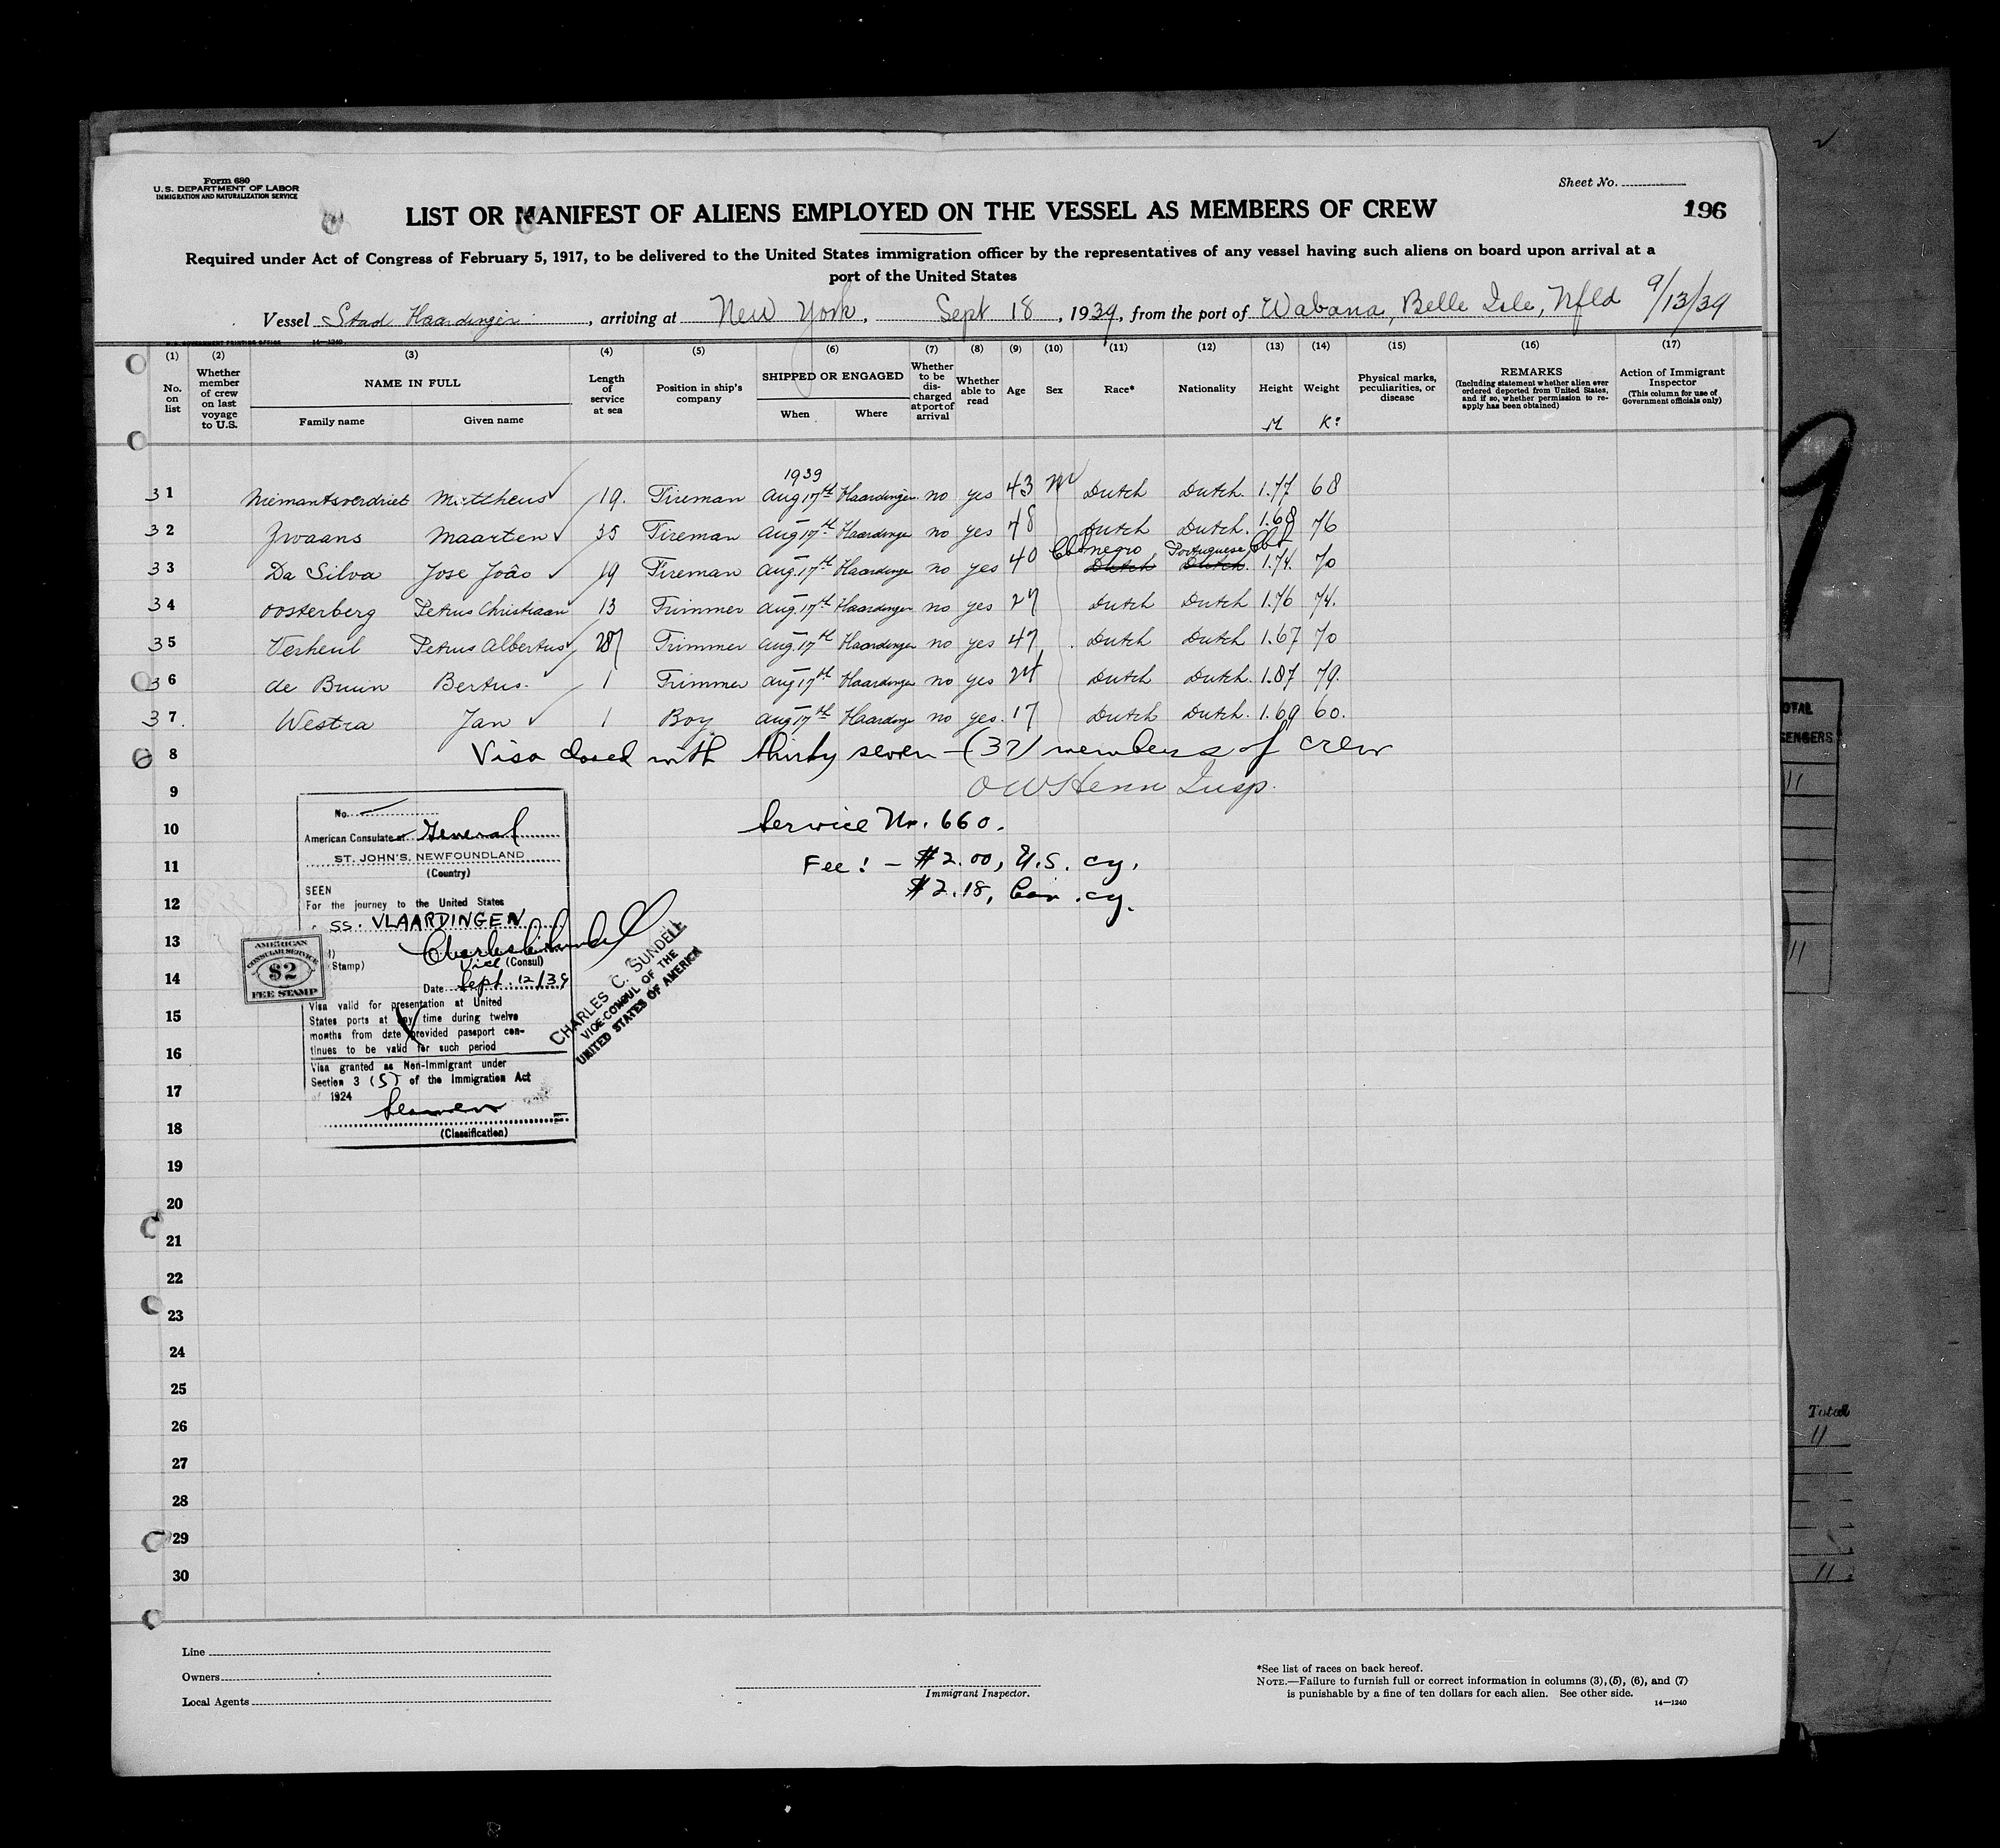 Form 680
U.S. DEPARTMENT OF LABOR
IMMIGRATION AND NATURALIZATION SERVICE
Sheet No.
LIST OR MANIFEST OF ALIENS EMPLOYED ON THE VESSEL AS MEMBERS OF CREW
196
Required under Act of Congress of February 5, 1917, to be delivered to the United States immigration officer by the representatives of any vessel having such aliens on board upon arrival at a
port of the United States
Vessel Stad Haardingen, arriving at New York, Sept 18, 1939, from the port of Wabana, Belle Isle, Nfld 9/13/39
14—1240
(1) (2) (3) (4) (5) (6) (7) (8) (9) (10) (11) (12) (13) (14) (15) (16) (17)
No. on list
Whether member of crew on last voyage to U.S.
NAME IN FULL
Family name
Given name
Length of service at sea
Position in ship's company
SHIPPED OR ENGAGED
When
Where
Whether to be discharged at port of arrival
Whether able to read
Age
Sex
Race*
Nationality
Height
Weight
Physical marks, peculiarities, or disease
REMARKS
(Including statement whether alien ever ordered deported from United States, and if so, whether permission to reapply has been obtained)
Action of Immigrant Inspector
(This column for use of Government officials only)
M K:
1939
31 Niemantsverdriet Mattheus 19. Fireman Aug 17th Haardingen no yes 43 M Dutch Dutch. 1.77 68
32 Zwaans Maarten 35 Fireman Aug 17th Haardinge no yes 48 Dutch Dutch. 1.68 76
negro Portuguese
33 Da Silva Jose João 19 Fireman Aug. 17th Haardinge no yes 40 Dutch Dutch. 1.74. 70
34 Oosterberg Petrus Christiaan 13 Trimmer Aug. 17th Haardingen no yes 27 Dutch Dutch 1.76 74.
35 Verheul Petrus Albertus 28 Trimmer Aug. 17th Haardingen no yes 47 Dutch Dutch 1.67 70
36 de Bruin Bertus. 1 Trimmer Aug 17th Haardingen no yes 24 Dutch Dutch. 1.87 79.
37. Westra Jan 1 Boy Aug 17th Haardinge no yes. 17 Dutch Dutch. 1.69 60.
8 Visa closed with thirty seven - (37) members of crew
9 O W Henn Insp.
10 Service No. 660.
11 Fee! - $2.00, U.S. cy.
12 $2.18, Can. cy.
13
14
15
16
17
18
19
20
21
22
23
24
25
26
27
28
29
30
No.
American Consulate at General
ST. JOHN'S, NEWFOUNDLAND
(Country)
SEEN
For the journey to the United States
SS. VLAARDINGEN
Vice (Consul)
Stamp)
Date Sept. 12/39
Visa valid for presentation at United
States ports at any time during twelve
months from date provided passport con-
tinues to be valid for such period
Visa granted as Non-Immigrant under
Section 3 (5) of the Immigration Act
of 1924
Seamen
(Classification)
AMERICAN
CONSULAR SERVICE
$2
FEE STAMP
CHARLES C. SUNDELL
VICE-CONSUL OF THE
UNITED STATES OF AMERICA
Line
Owners
Local Agents
Immigrant Inspector.
*See list of races on back hereof.
NOTE.—Failure to furnish full or correct information in columns (3), (5), (6), and (7)
is punishable by a fine of ten dollars for each alien. See other side.
14—1240
9
OTAL
SENGERS
11
11
Total
11
11